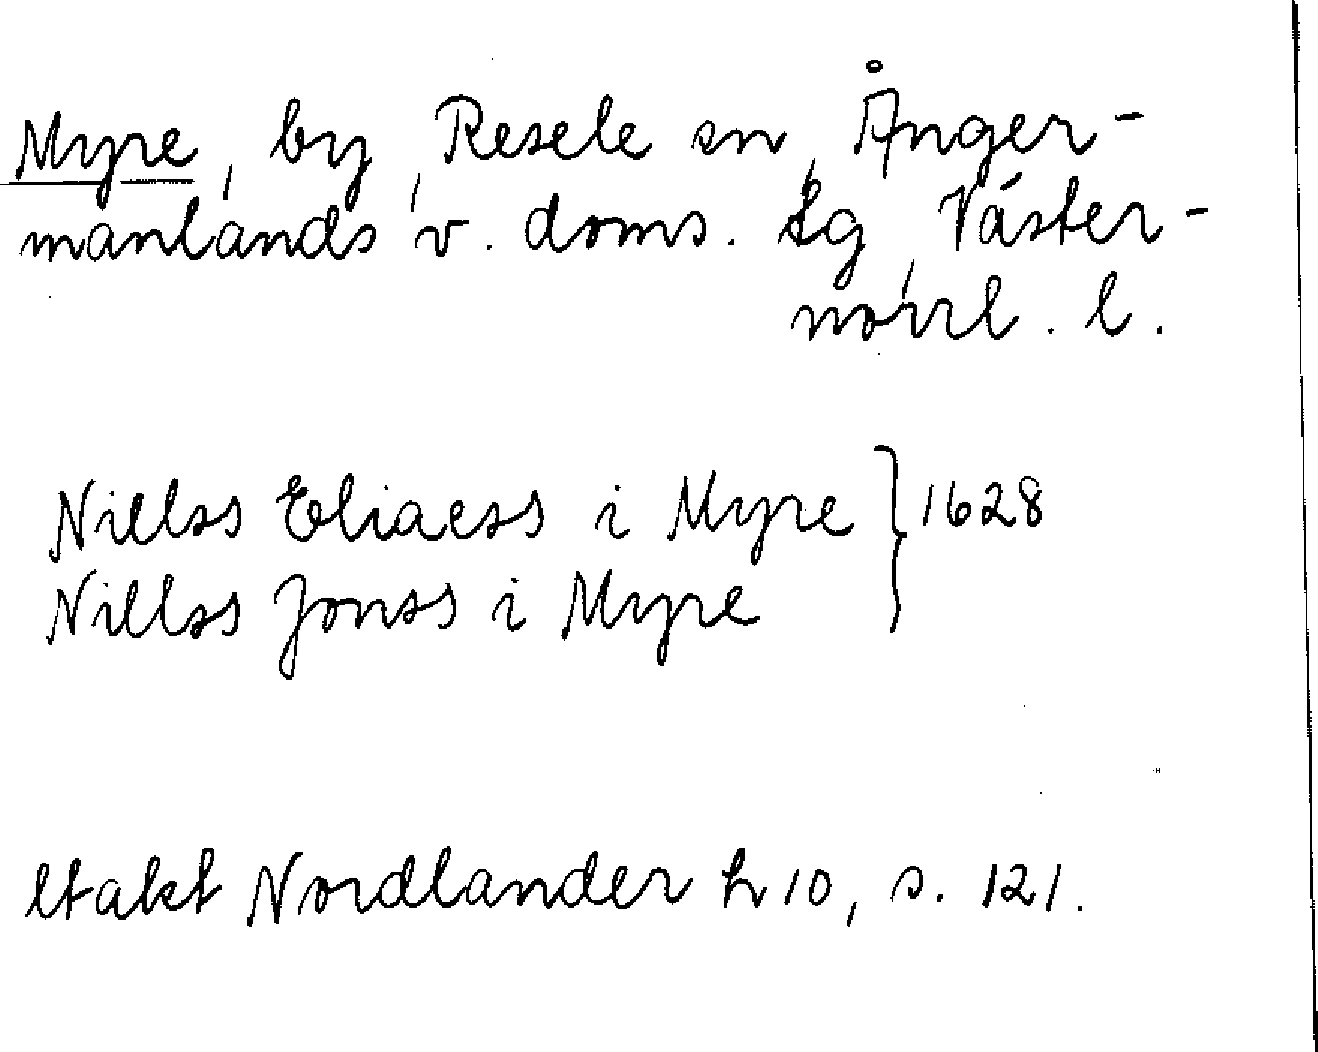 Myre, by, Resele sn, Ånger-
manlands v. doms. Lg, Väster-
norrl. l.
Nillss Eliaess i Myre } 1628
Nillss Jonss i Myre
Nordlander h 10, s. 121.